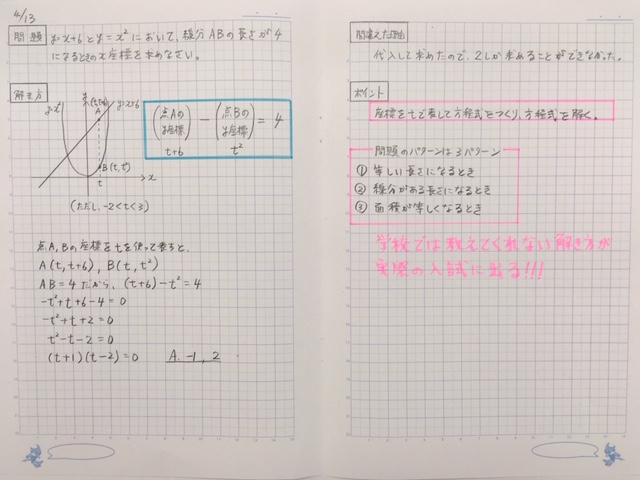 4/13
問題 y=x+6とy=x²において、線分ABの長さが4
になるときのx座標を求めなさい。
解き方
y=x²
y=x+6
A
(t, t+6)
B(t, t²)
t
x
(ただし、-2<t<3)
(点Aのy座標) − (点Bのy座標) = 4
t+6
t²
点A,Bの座標をtを使って表すと、
A(t, t+6), B(t, t²)
AB=4だから、(t+6)-t²=4
-t²+t+6-4=0
-t²+t+2=0
t²-t-2=0
(t+1)(t-2)=0 A. -1, 2
間違えた理由
代入して求めたので、2しか求めることができなかった。
ポイント
座標をtで表して方程式をつくり、方程式を解く。
問題のパターンは3パターン
① 等しい長さになるとき
② 線分がある長さになるとき
③ 面積が等しくなるとき
学校では教えてくれない解き方が
実際の入試に出る!!!